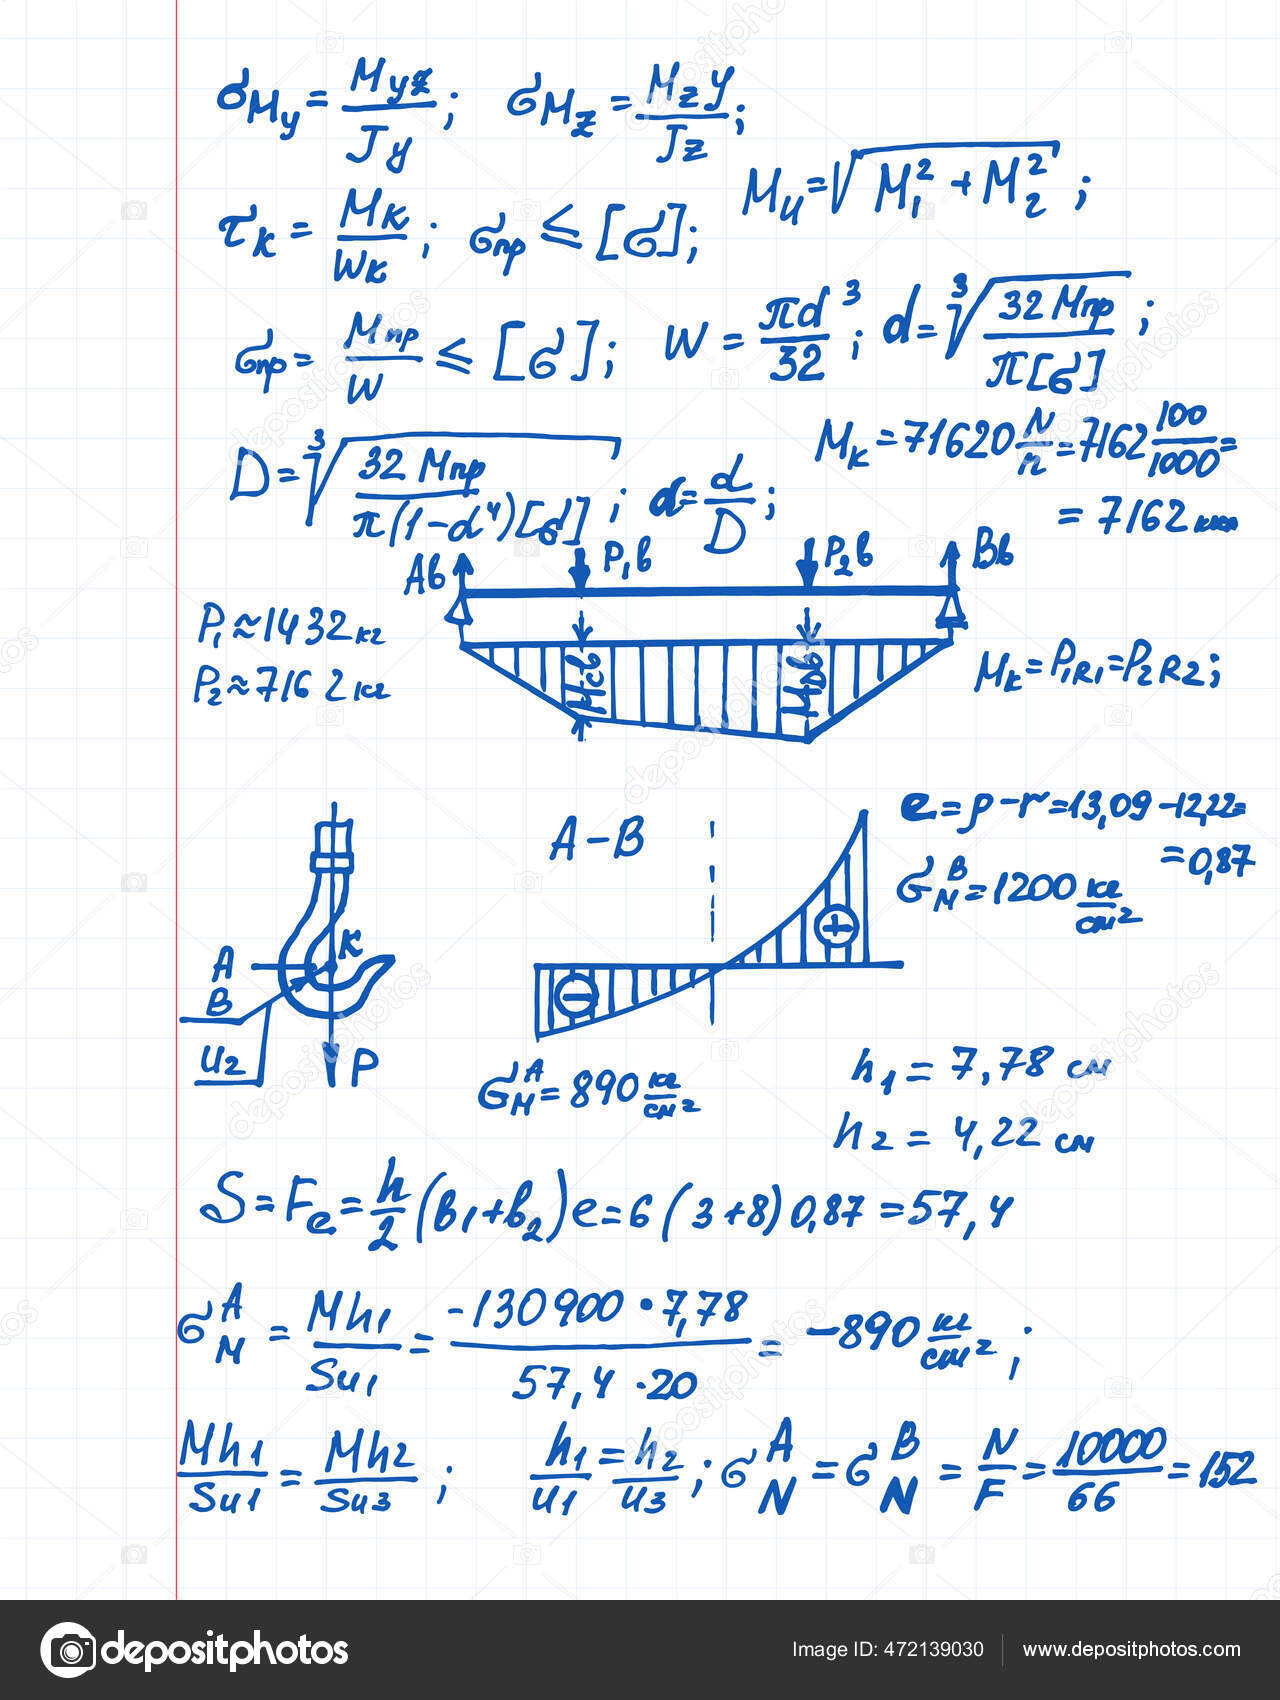 σMy = Myz / Jy ; σMz = Mz y / Jz ;
Mu = √(M₁² + M₂²) ;
τк = Mк / Wк ; σпр ≤ [σ] ;
σпр = Mпр / W ≤ [σ] ; W = πd³ / 32 ; d = ∛(32 Mпр / π[σ]) ;
Mк = 71620 N/n = 7162 100/1000 =
= 7162
D = ∛(32 Mпр / π(1-α⁴)[σ]) ; α = d / D ;
Aв P₁в P₂в Bв
P₁ ≈ 1432 кг
P₂ ≈ 7162 кг
Mсв MDв
Mк = P₁R₁ = P₂R₂ ;
e = ρ - r = 13,09 - 12,22 =
= 0,87
A - B
σMᴮ = 1200 кг/см²
K
A
B
⊕
⊖
u₂
P
σMᴬ = 890 кг/см²
h₁ = 7,78 см
h₂ = 4,22 см
S = Fe = h/2 (в₁ + в₂) e = 6 (3+8) 0,87 = 57,4
σMᴬ = Mh₁ / Su₁ = -130900 · 7,78 / 57,4 · 20 = -890 кг/см² ;
Mh₁ / Su₁ = Mh₂ / Su₃ ; h₁ / u₁ = h₂ / u₃ ; σNᴬ = σNᴮ = N / F = 10000 / 66 = 152
depositphotos
Image ID: 472139030 www.depositphotos.com